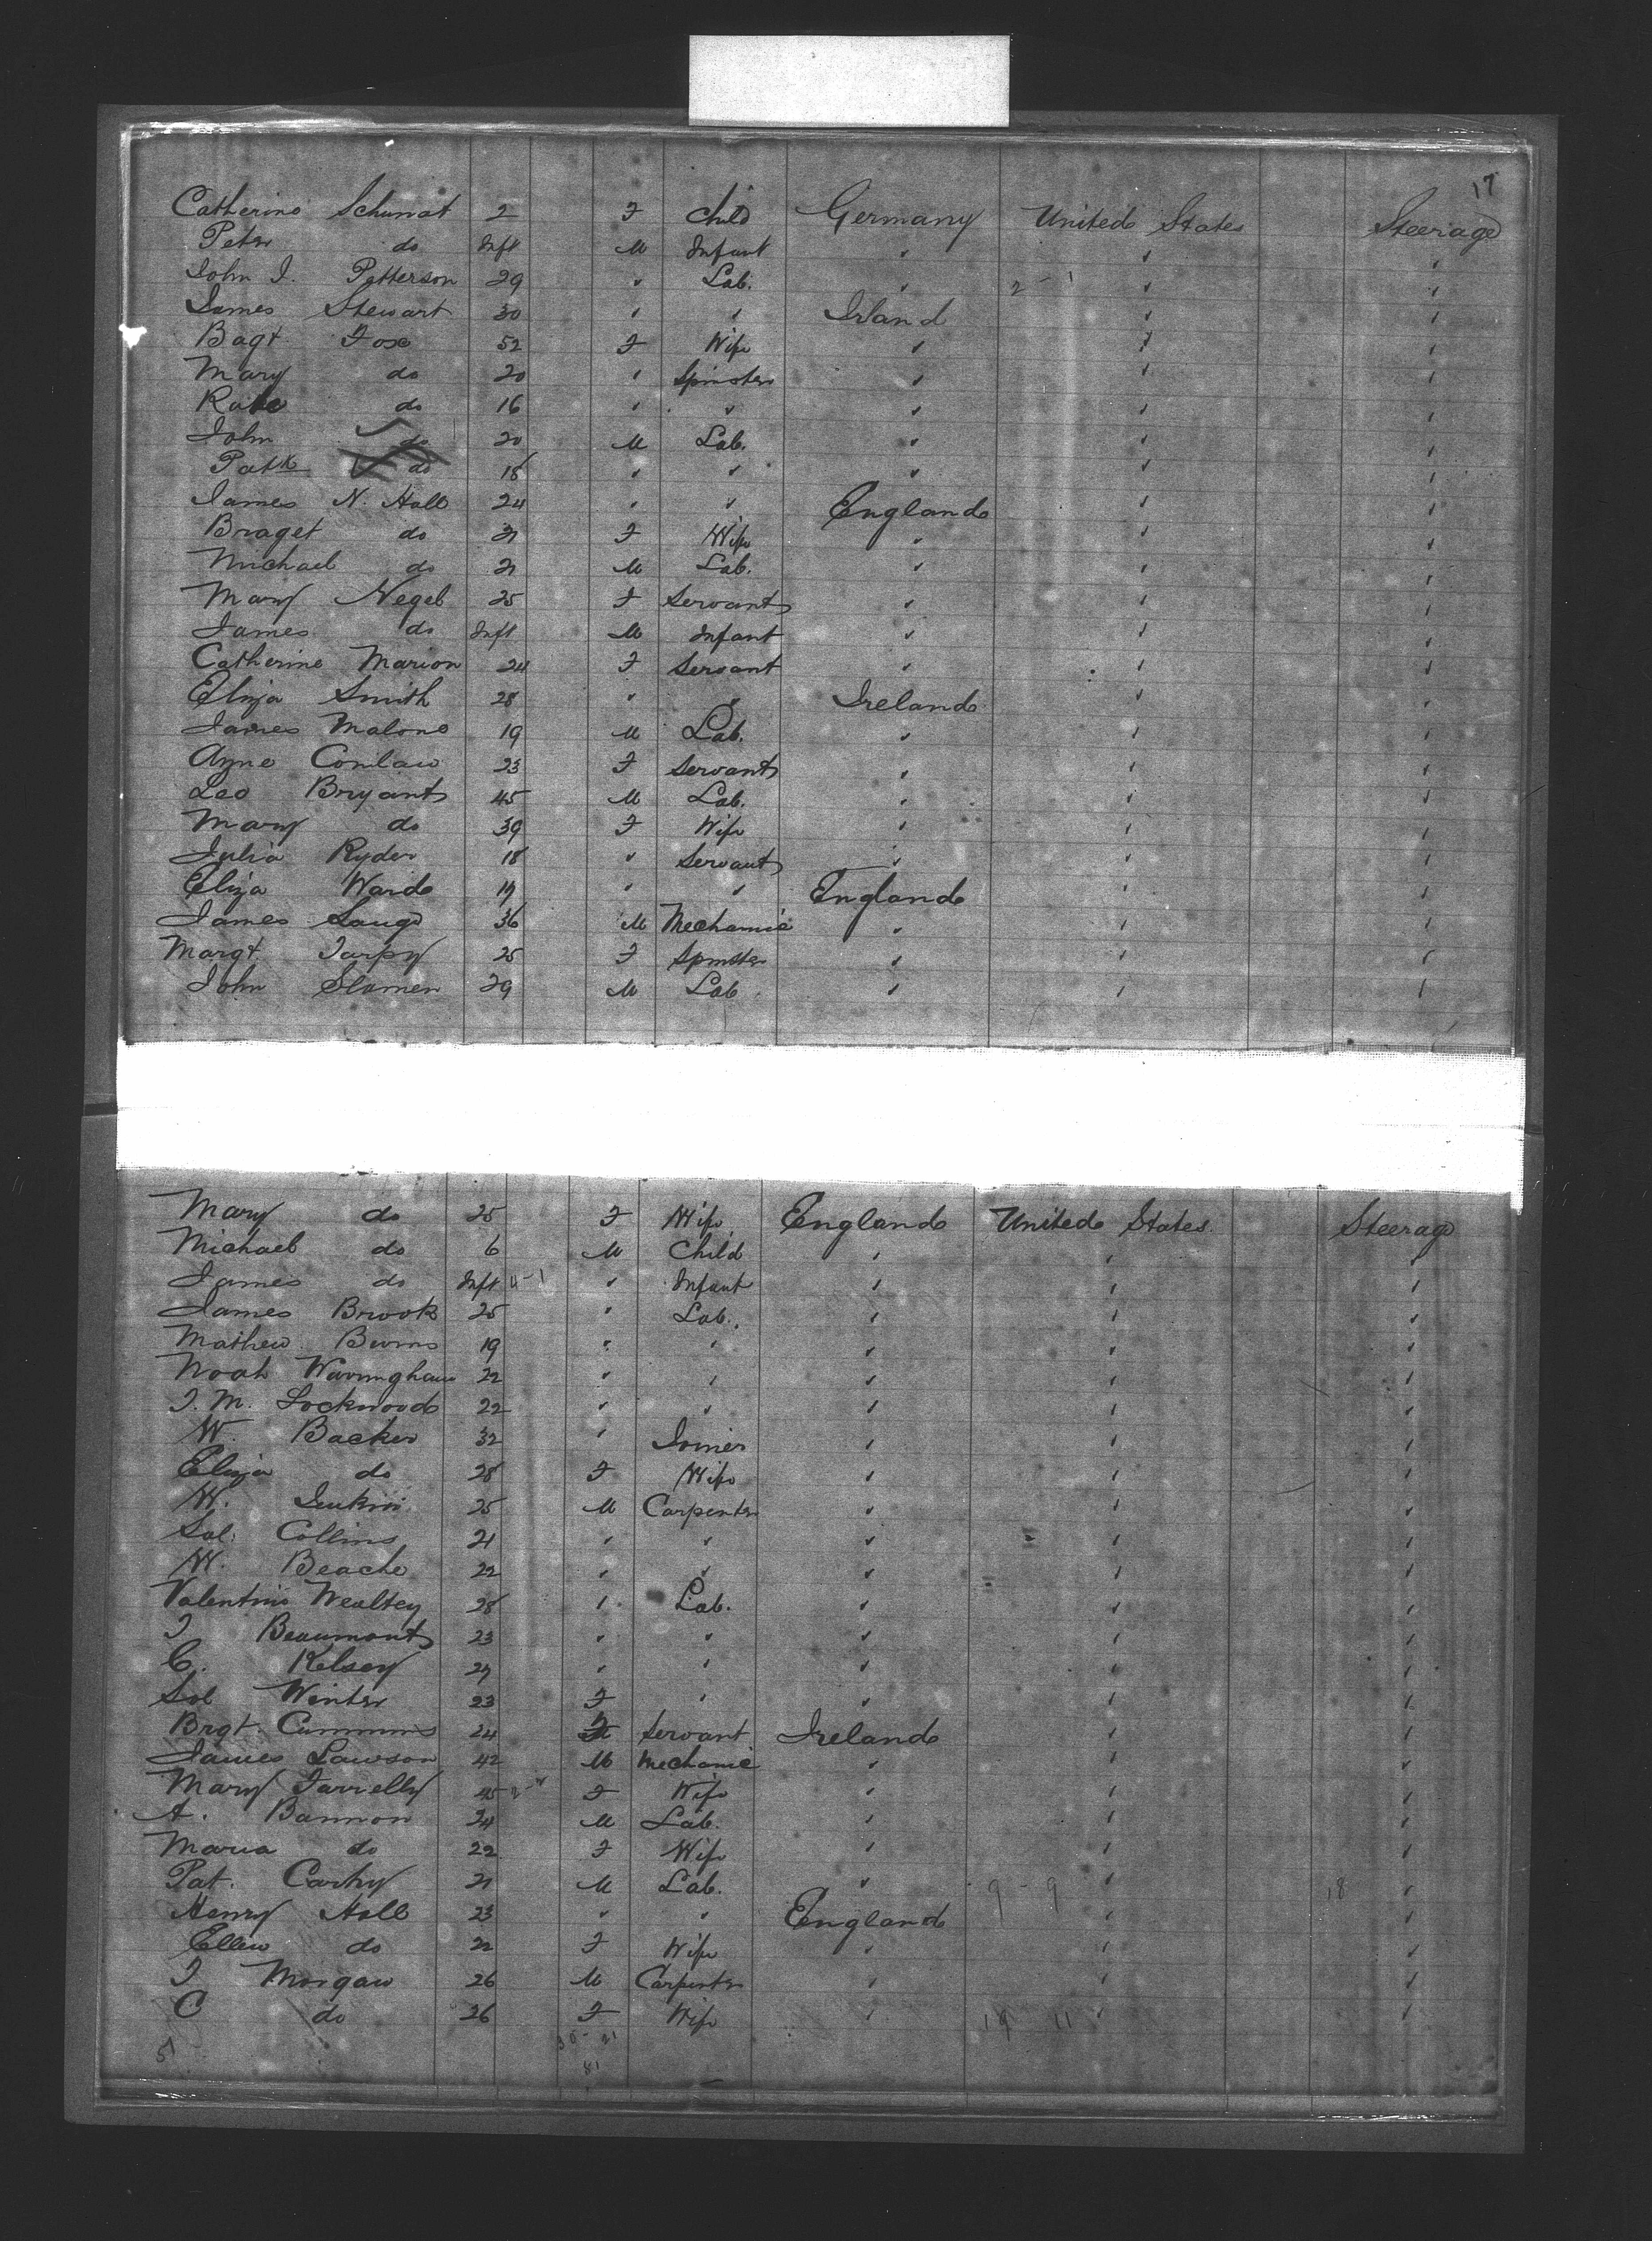 17
Catherine Schumat 2 F Child Germany United States Steerage
Peter do Inft M Infant " " "
John I. Patterson 29 " Lab. " 2-1 " "
James Stewart 30 " " Irland " "
Bagt Fox 52 F Wife " " "
Mary do 20 " Spinster " " "
Kate do 16 " " " " "
John do 20 M Lab. " " "
Patk do 18 " " " " "
James N. Hall 24 " " England " "
Braget do 21 F Wife " " "
Michael do 21 M Lab. " " "
Mary Negel 25 F Servant " " "
James do Inft M Infant " " "
Catherine Marion 24 F Servant " " "
Eliza Smith 28 " " Ireland " "
James Malone 19 M Lab. " " "
Ayne Conlaw 23 F Servant " " "
Leo Bryant 45 M Lab. " " "
Mary do 39 F Wife " " "
Julia Ryder 18 " Servant " " "
Eliza Ward 19 " " England " "
James 36 M Mechanic " " "
Margt Tarpy 25 F Spinster " " "
John Slamen 29 M Lab " " "
Mary do 25 F Wife England United States Steerage
Michael do 6 M Child " " "
James do Inft 4-1 " Infant " " "
James Brook 25 " Lab. " " "
Mathew Burns 19 " " " " "
Noah Warmingham 22 " " " " "
J. M. Lockwood 22 " " " " "
W. Backer 32 " Joiner " " "
Eliza do 28 F Wife " " "
W. Jenkin 25 M Carpenter " " "
Sol. Collins 21 " " " " "
W. Beach 22 " " " " "
Valentine Wealtey 28 " Lab. " " "
J Beaumont 23 " " " " "
C. Kelsey 27 " " " " "
Sol Winter 23 F " " " "
Brgt. Cummins 24 F Servant Ireland " "
James Lawson 42 M Mechanic " " "
Mary Farrelly 45 F Wife " " "
A. Bannon 24 M Lab. " " "
Maria do 22 F Wife " " "
Pat. Carhy 21 M Lab. " 9-9 " 18 "
Henry Hall 23 " " England " "
Ellen do 22 F Wife " " "
J Morgan 26 M Carpenter " " "
C do 26 F Wife " 19 11 " "
51